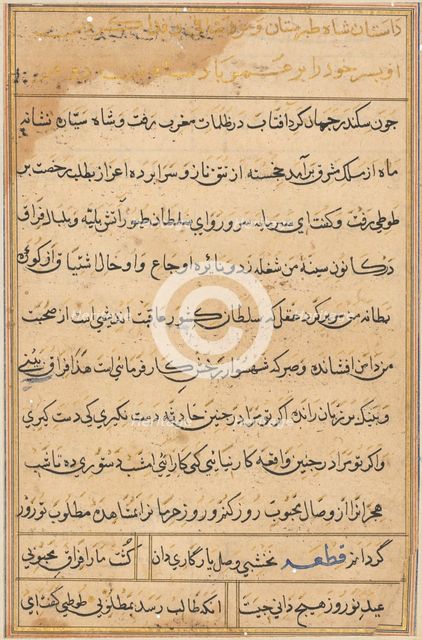 داستان شاه طبرستان و
او پسر خود را بر
چون سکندر جهان کرد آفتاب در ظلمات مغرب رفت و شاه سیاره نشانه
ماه از ملک مشرق برآمد خجسته از تتق ناز و سراپرده اعزاز بطلب رخصت بر
طوطی رفت و گفت ای سرمایه سروروای سلطان طیور آتش بلیه و بلبال فراق
در کانون سینه من شعله زد و نائره اوجاع و اوحال اشتیاق از کوره
بطانه من عقل که سلطان کشور عاقبت اندیشی است از صحبت
من دامن افشانده و صبر که شهسوار رخش کار فرمائی است هذا فراق بینی
و بینک بر زبان رانده اگر تو مرا در چنین حادثه دست نگیری کی دست گیری
و اگر تو مرا در چنین واقعه کار نیائی کی کار آئی امشب دستوری ده تا شب
هجرانرا از وصال محبوب روز کنم و روز حرمانرا بمشاهده مطلوب نوروز
گردانم قطعه نخشبی وصل یار گاری دان گشت ما را فراق محبوبی
عید نوروز هیچ دانی چیست آنکه طالب رسد بمطلوبی طوطی گفت ای